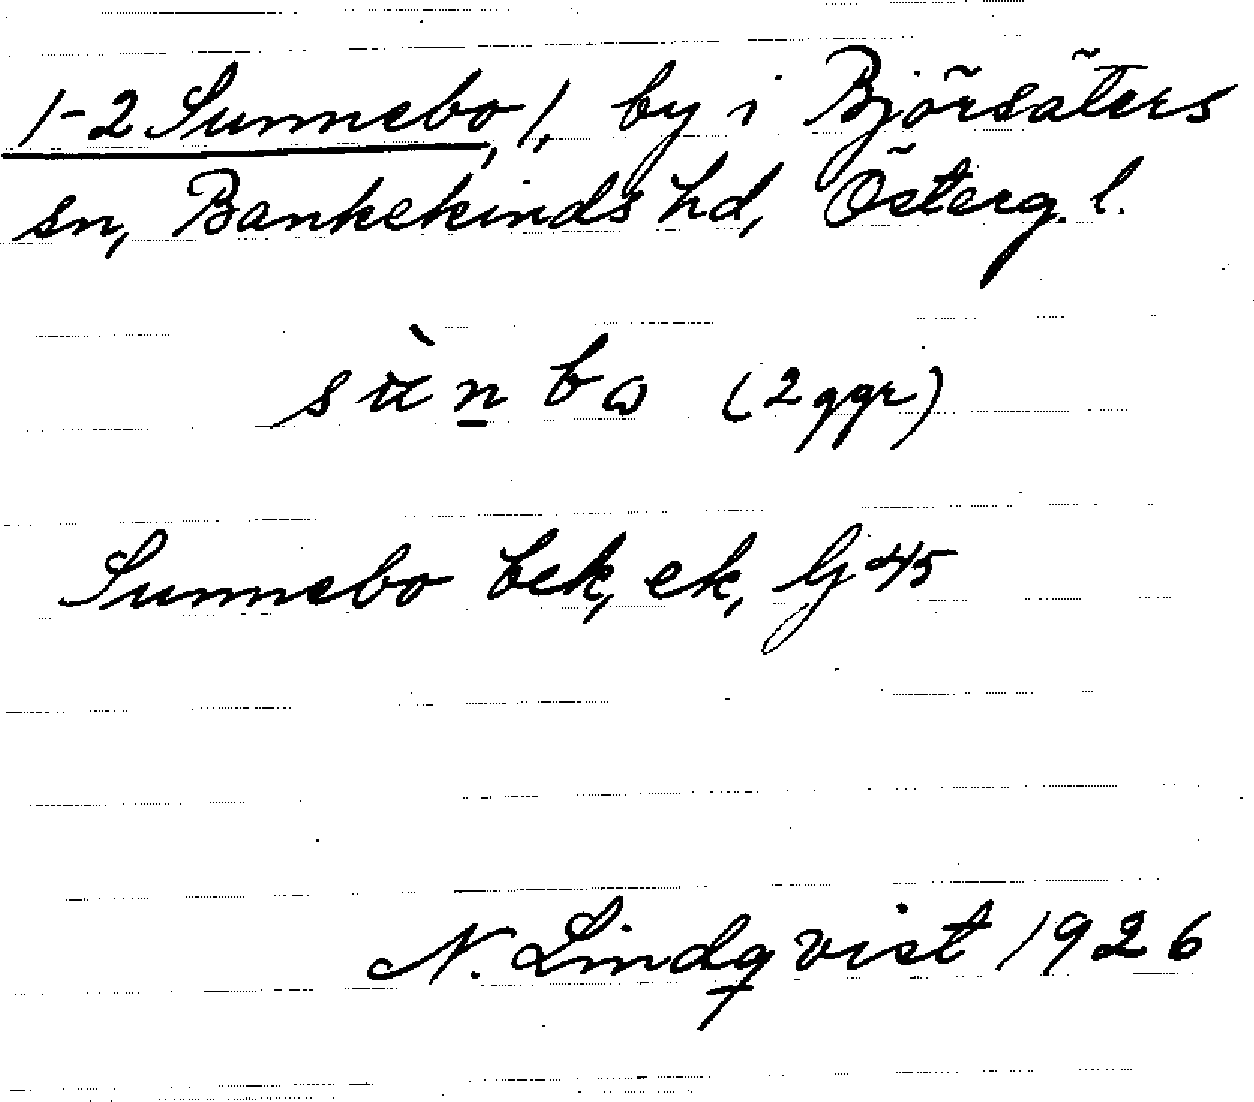 1-2 Sunnebo, 1, by i Björsäters
sn, Bankekinds hd, Österg. l.
(2 ggr)
Sunnebo bek, ek, lj 45
N. Lindqvist 1926